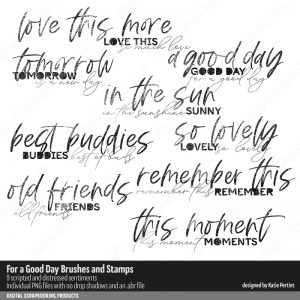 love this more
LOVE THIS so much love
tomorrow
TOMORROW
is a new day
a good day
GOOD DAY
for a good day
in the sun
in the sunshine SUNNY
best buddies
BUDDIES best of buds
so lovely
LOVELY so lovely
old friends
old friends FRIENDS
remember this
remember this REMEMBER
this moment
this moment MOMENTS
For a Good Day Brushes and Stamps
9 scripted and distressed sentiments
Individual PNG files with no drop shadows and an .abr file
designed by Katie Pertiet
DIGITAL SCRAPBOOKING PRODUCTS